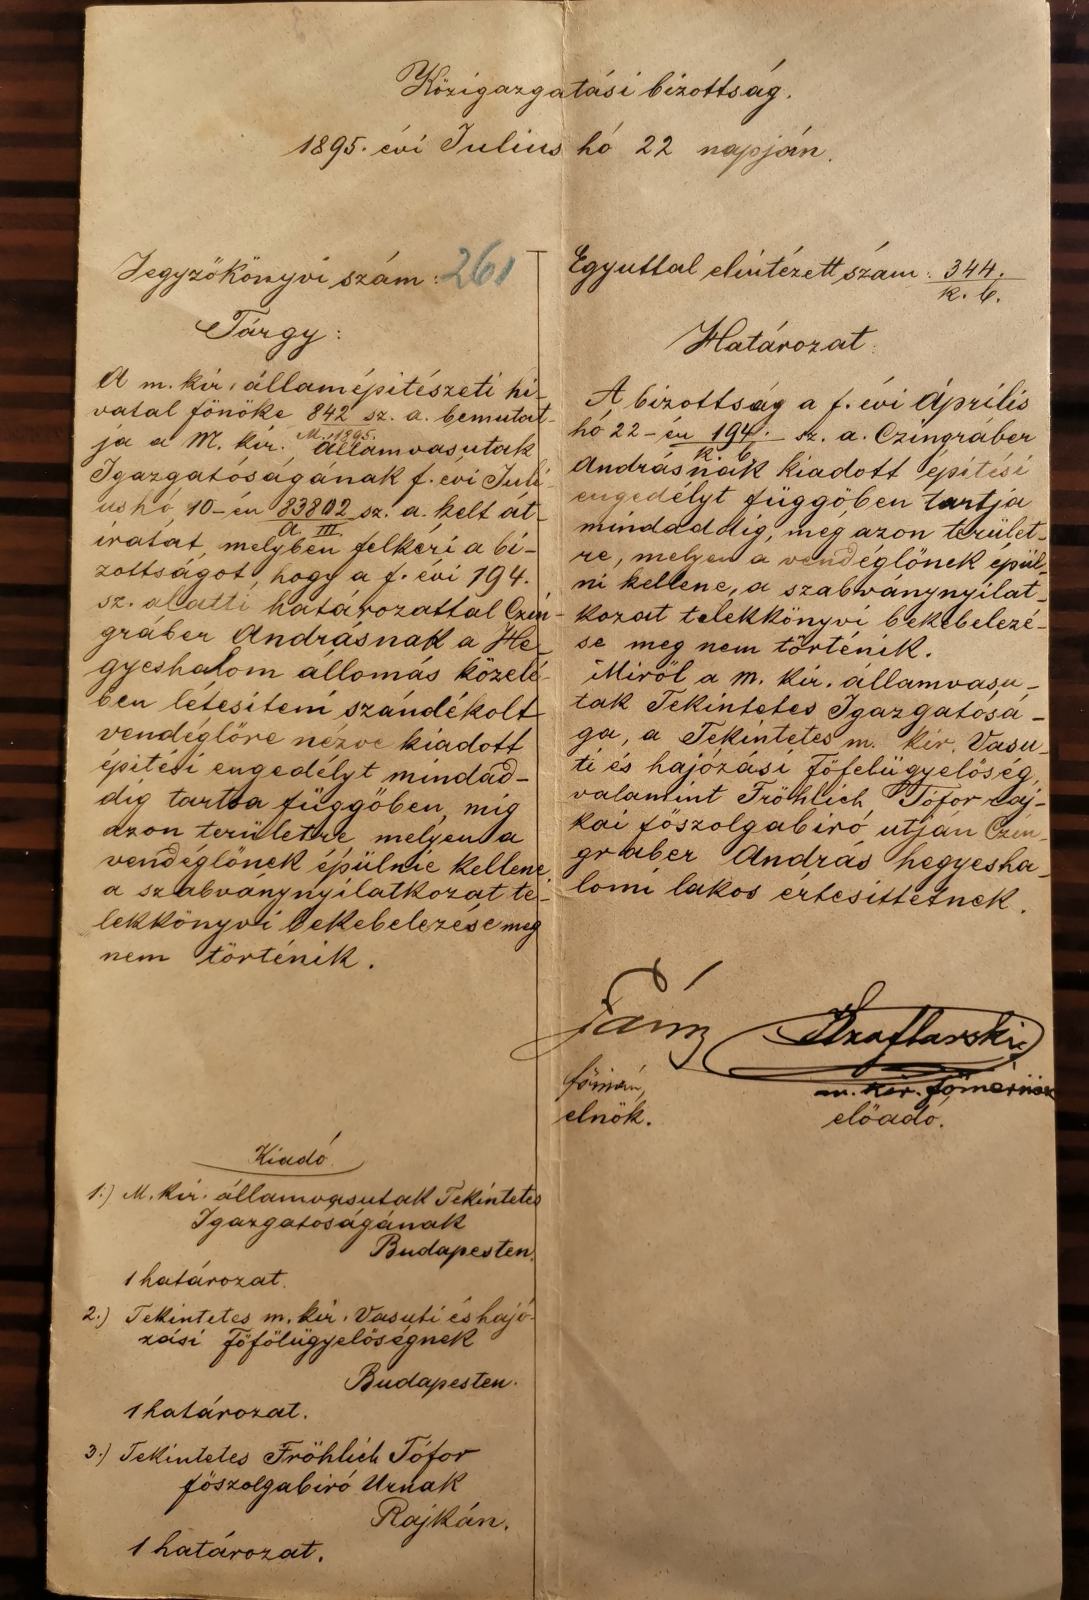 Közigazgatási bizottság.
1895. évi Julius hó 22 napján.
Jegyzökönyvi szám: 261
Tárgy:
A m. kir. államépitészeti hi-
vatal fönöke 842 sz. a. bemutat-
M. 1895.
ja a M. kir. államvasutak
Igazgatóságának f. évi Juli-
us hó 10-én 83802 sz. a. kelt át-
A III.
iratát, melyben felkéri a bi-
zottságot, hogy a f. évi 194.
sz. alatti határozattal Czin-
gráber Andrásnak a He-
gyeshalom állomás közelé-
ben létesiteni szándékolt
vendéglőre nézve kiadott
épitési engedélyt mindad-
dig tartsa függöben, mig
azon területre melyen a
vendéglőnek épülnie kellene,
a szabványnyilatkozat te-
lekkönyvi bekebelezése meg
nem történik.
Kiadó
1.) M. kir. államvasutak Tekintetes
Igazgatóságának
Budapesten.
1 határozat.
2.) Tekintetes m. kir. Vasuti és hajó-
zási Föfölügyelöségnek
Budapesten.
1 határozat.
3.) Tekintetes Fröhlich Tófor
föszolgabiró Urnak
Rajkán.
1 határozat.
Egyuttal elintézett szám: 344.
k. b.
Határozat:
A bizottság a f. évi Április
hó 22-én 194. sz. a. Czingráber
k. b.
Andrásnak kiadott épitési
engedélyt függöben tartja
mindaddig, mig azon terület-
re, melyen a vendéglőnek épül-
ni kellene, a szabványnyilat-
kozat telekkönyvi bekebelezé-
se meg nem történik.
Miröl a m. kir. államvasu-
tak Tekintetes Igazgatósá-
ga, a Tekintetes m. kir. Vasu-
ti és hajózási Föfelügyelöség,
valamint Fröhlich Tófor raj-
kai föszolgabiró utján Czin-
graber András hegyesha-
lomi lakos értesittetnek.
föispán,
elnök.
m. kir. fömérnök
elöadó.